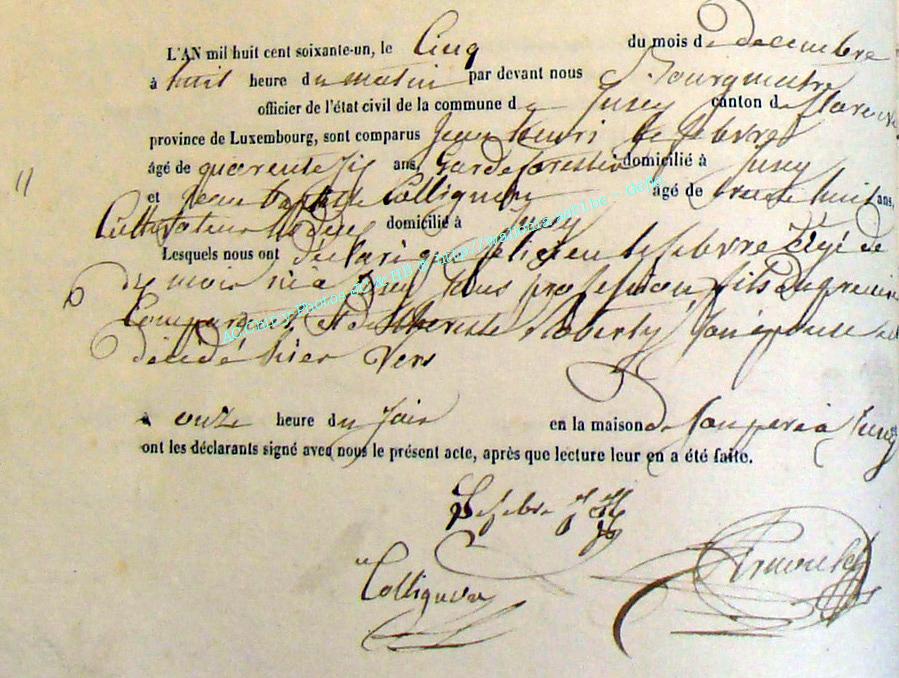 L'AN mil huit cent soixante-un, le Cinq du mois de decembre
à huit heure du matin par devant nous Bourgmestre
officier de l'état civil de la commune de Jusey canton de
province de Luxembourg, sont comparus Jean henri Lefebvre
âgé de quarente six ans, Garde forestier domicilié à Jusey
11
et Jean baptiste Collignon âgé de trente huit ans,
Cultivateur domicilié à Jusey
Lesquels nous ont déclaré que felicien Lefebvre âgé de
mois né à Jusey sans profession fils du premier
Comparant et de therese Roberty son épouse est
décédé hier vers
à onze heure du soir en la maison de son père à Jusey
ont les déclarants signé avec nous le présent acte, après que lecture leur en a été faite.
Lefebvre
Collignon